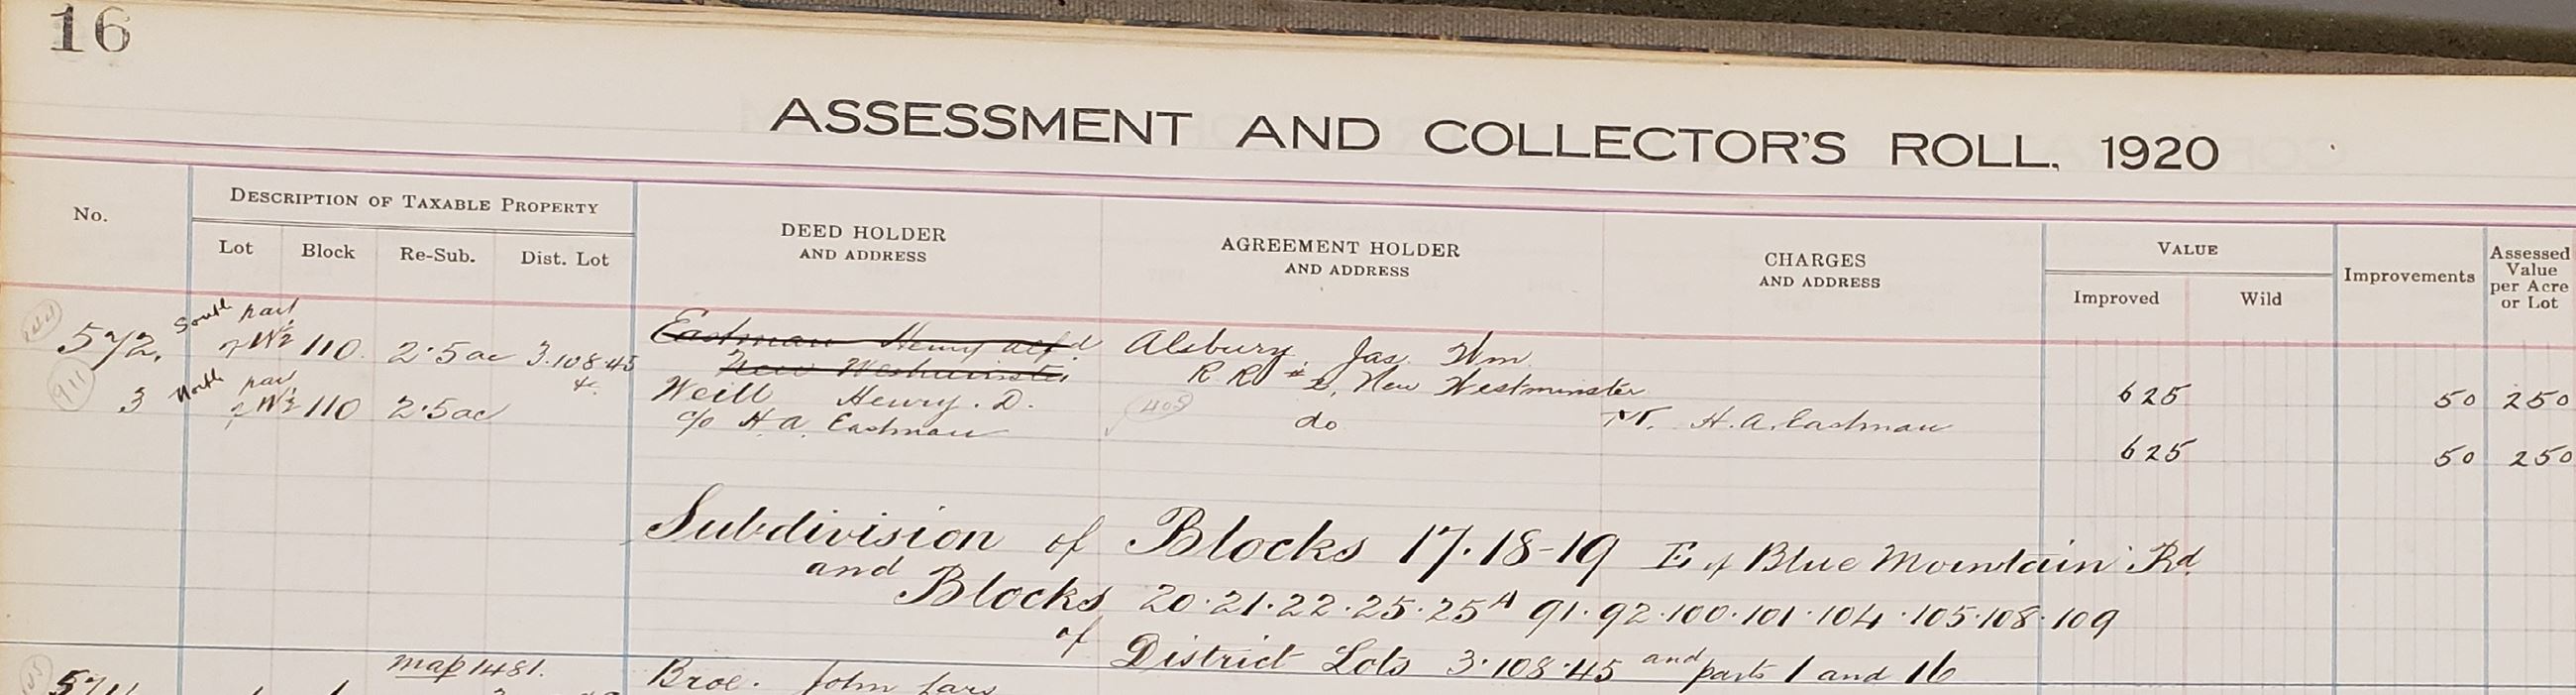 16
ASSESSMENT AND COLLECTOR'S ROLL, 1920
No.
DESCRIPTION OF TAXABLE PROPERTY
Lot Block Re-Sub. Dist. Lot
DEED HOLDER
AND ADDRESS
AGREEMENT HOLDER
AND ADDRESS
CHARGES
AND ADDRESS
VALUE
Improved Wild
Improvements
Assessed
Value
per Acre
or Lot
South part
572. W½ 110. 2.5 ac 3.108.45 Eastman Henry Alf'd Alsbury, Jas. Wm.
New Westminster R R # 2, New Westminster
625 50 250
911
North part
3 W½ 110 2.5 ac Weill Henry. D.
c/o H. A. Eastman do H. A. Eastman
625 50 250
Subdivision of Blocks 17.18-19 E of Blue Mountain Rd.
and Blocks 20.21.22.25.25A 91.92.100.101.104.105.108.109
of District Lots 3.108.45 and parts 1 and 16
map 1481.
Broe. John Lars